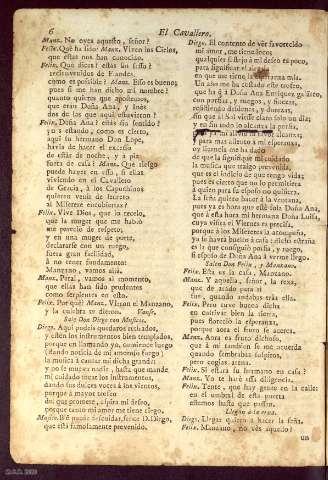 6 El Cavallero.
Manz. No oyes aquesto, señor?
Felix. Què ha sido? Manz. Viven los Cielos,
que estas nos han conocido.
Felix. Què dices? estàs sin seso?
recienvenidos de Flandes,
como es possible? Manz. Esso es bueno;
pues si me han dicho mi nombre?
quanto quieres que apostemos,
que eran Doña Ana, y Inès
dos de las que aqui estuvieron?
Felix. Doña Ana? estàs sin sentido?
Manz. Y si estando, como es cierto,
aqui su hermano Don Lope,
havia de hacer el excesso
de estàr de noche, y a pie,
fuera de su casa? Manz. Què riesgo
puede haver en esso, si ella
viviendo en el Cavallero
de Gracia, à los Capuchinos
quieren venir de secreto
al Miserere encubiertas?
Felix. Vive Dios, que lo recelo,
que la muger que me hablò
me pareciò de respeto,
y en una muger de porte,
declararse con un ruego,
fuera gran facilidad,
à no tener fundamento:
Manzano, vamos allà.
Manz. Pesia! vamos al momento,
que ellas han sido prudentes
como serpientes en esto.
Felix. Por què? Manz. Vieron el Manzano,
y la culebra te dieron. Vanse.
Sale Don Diego con Musicos.
Diego. Aqui podeis quedaros retirados,
y esten los instrumentos bien templados,
porque en llamando yo, comience luego
(dando noticia de mi amoroso fuego)
la musica à cantar mi dicha grande;
y no se mueva nadie, hasta que mande
mi cuidado tocar los instrumentos,
dando sus dulces voces à los vientos,
porque à mayor troseo
del que promete, aspira mi deseo,
porque tanto mi amor me tiene ciego.
Musico. Vè puede descuidar, señor D. Diego,
que està famosamente prevenido.
Diego. El contento de vèr favorecido
mi amor, me tiene loco;
qualquier festejo à mi deseo es poco,
para significar la alegria
en que me tiene la esperanza mia.
Un año me ha costado este troseo,
que ha que à Doña Ana Enriquez galanteo,
con porfias, y ruegos, y finezas,
resistiendo desdenes, y durezas,
sin que al Sol viesse claro solo un dia,
y en su lado
y para mas aliento à mi esperanza,
oy licencia me ha dado
de que la signifique mi cuidado
la musica que traigo prevenida,
que es el indicio de que tengo vida;
pues es cierto que no lo permitiera
à quien para su esposo no quisiera.
La seña quiere hacer à la ventana,
pues ya es hora que estè sola Doña Ana,
que à esta hora mi hermana Doña Luisa,
cuya visita el Viernes es precisa,
porque à los Miserere la acompaña,
ya se havrà buelto à casa: dicha estraña
es la que consiguiò porfia, y ruego,
si esposo de Doña Ana à verme llego.
Salen Don Felix, y Manzano.
Felix. Esta es la casa, Manzano.
Manz. Y aquella, señor, la rexa,
que de asido para ti
fue, quando andabas tràs ella.
Felix. Pero tuve buena dicha
en cultivar bien la tierra,
pues floreciò la esperanza,
porque aora el fruto se acerca.
Manz. Aora es fruto dichoso,
que à mi tambien se me acuerda
quando sembrabas suspiros,
pero cogias arena.
Felix. Si estarà su hermano en casa?
Manz. Yo te harè essa diligencia.
Felix. Tente, que hay gente en la calle:
en el umbral de esta puerta
estemos hasta que passen.
Llegan à la rexa.
Diego. Llegar quiero à hacer la seña.
Felix. Manzano, no vès aquello?
un